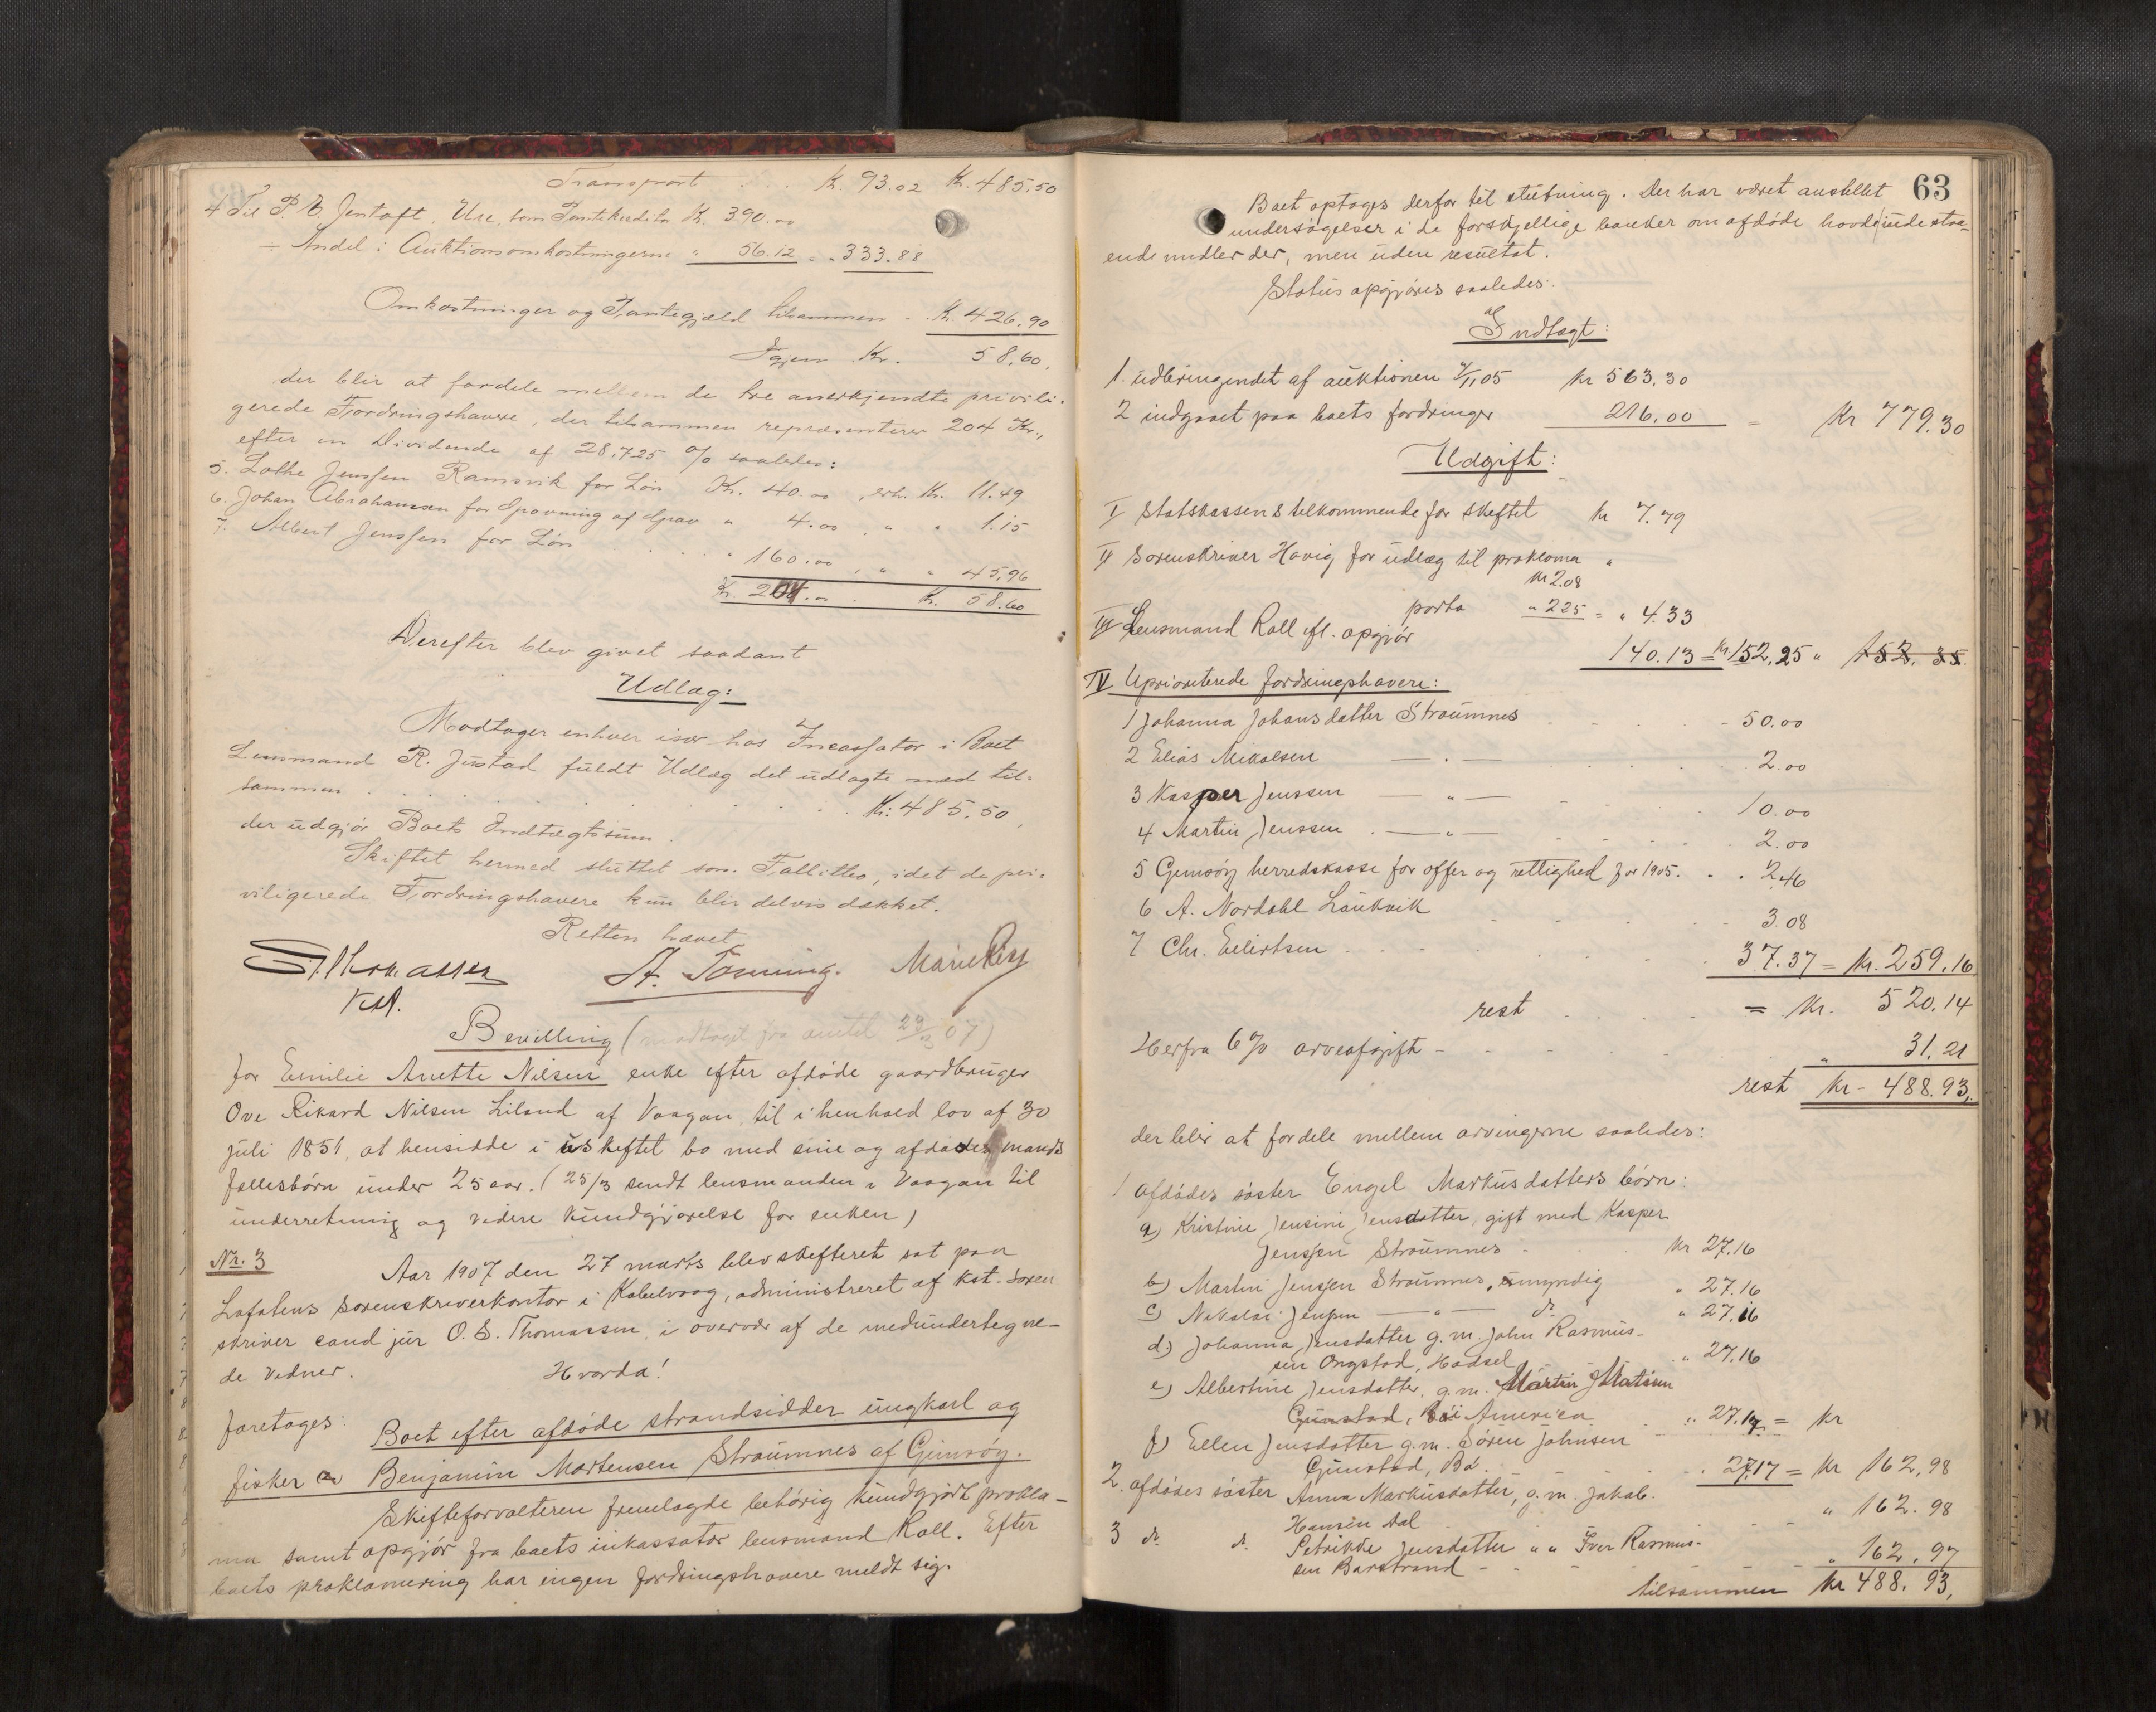 Transport . . . Kr. 93.02 Kr. 485.50
4 Til P. A. Jentoft, Ure, som Pantekreditor Kr. 390.00
÷ Andel i Auktionsomkostningerne " 56.12 = " 333.88
Omkostninger og Pantegjæld tilsammen . . Kr. 426.90
Igjen Kr. 58.60.
der blir at fordele mellem de tre anerkjendte privili-
gerede Fordringshavere, der tilsammen repræsenterer 204 Kr.,
efter en Dividende af 28,725 % saaledes:
5. Lothe Jenssen Ramsvik for Løn Kr. 40.00, erh. Kr. 11.49
6. Johan Abrahamsen for Opavning af Grav " 4.00 " " 1.15
7. Albert Jenssen for Løn . . . . . " 160.00, " " 45.96
Kr. 204.00 . Kr. 58.60
Derefter blev givet saadant
Udlæg:
Modtager enhver især hos Incassator i Boet
Lensmand R. Justad fuldt Udlæg det udlagte med til-
sammen . . . . . . . . . . . Kr. 485.50,
der udgjør Boets Indtægtssum.
Skiftet hermed sluttet som Fallitbo, idet de pri-
viligerede Fordringshavere kun blir delvis dækket.
Retten hævet
O. S. Thomassen A. Tønning. Marie Riis
Kst.
Bevilling (modtaget fra amtet 23/3 07)
for Emilie Anette Nilsen enke efter afdøde gaardbruger
Ove Rikard Nilsen Liland af Vaagan, til i henhold lov af 30
juli 1851, at hensidde i uskiftet bo med sine og afdødes mands
fællesbørn under 25 aar. (25/3 sendt lensmanden i Vaagan til
underretning og videre kundgjørelse for enken)
Nr. 3 Aar 1907 den 27 marts blev skifteret sat paa
Lofotens sorenskriverkontor i Kabelvaag, administreret af kst. soren-
skriver cand jur O. S. Thomassen, i overvær af de medundertegne-
de vidner. Hvorda!
foretages: Boet efter afdøde strandsidder ungkarl og
fisker Benjamin Mortensen Straumnes af Gimsøy.
Skifteforvalteren fremlagde behørig kundgjort prokla-
ma samt opgjør fra boets inkassator lensmand Rall. Efter
boets proklamering har ingen fordringshavere meldt sig.
63
Boet optages derfor til slutning. Der har været anstillet
undersøgelser i de forskjellige banker om afdøde havde indestaa-
ende midler der, men uden resultat.
Status opgjøres saaledes:
Indtægt:
1. udbringendet af auktionen 7/11 05 Kr 563.30
2 indgaaet paa boets fordringer 216.00 = Kr 779.30
Udgift:
I Statskassens tilkommende for skiftet Kr 7.79
II Sorenskriver Havig for udlæg til proklama "
Kr 2.08
porto " 2.25 = " 4.33
III Lensmand Rall ifl. opgjør 140.13 = Kr 152,25 " 152.35
IV Uprioriterede fordringshavere:
1 Johanna Johansdatter Straumnes . . . 50.00
2 Elias Mikalsen — " — . . . 2.00
3 Kasper Jenssen — " — . . 10.00
4 Martin Jenssen — " — . . . 2.00
5 Gimsøy herredskasse for offer og rettighed for 1905. . . 2.46
6 A. Nordahl Laukvik . . . 3.08
7 Chr. Eilertsen . . . . 37.37 = Kr. 259.16
rest . . . . = Kr. 520.14
Herfra 6% arveafgift - - - " 31.21
rest Kr - 488.93,
der blir at fordele mellem arvingerne saaledes:
1 Afdødes søster Engel Markusdatters børn:
a) Kristine Jensine Jensdatter, gift med Kasper
Jenssen Straumnes - . Kr 27.16
b) Martin Jenssen Straumnes, umyndig " 27.16
c) Nikolai Jenssen — " — do " 27.16
d) Johanna Jensdatter g. m. John Rasmus-
sen Ongstad, Hadsel " 27.16
e) Albertine Jensdatter, g. m. Martin J Matisen
Gunstad, Bø i America . " 27.17 = Kr
f) Ellen Jensdatter g. m. Søren Johnsen
Gunstad, Bø. . . . 27.17 = Kr 162.98
2. afdødes søster Anna Markusdatter, g. m. Jakob
Hansen Dal - - - " 162.98
3 do do Petrikke Jensdatter " " Iver Rasmus-
sen Barstrand - - - " 162.97
tilsammen Kr 488.93,